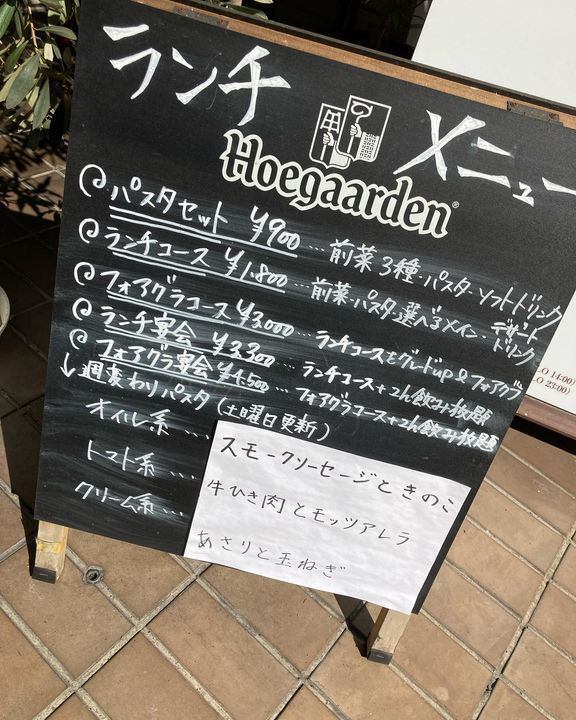 ランチ メニュー
Hoegaarden®
パスタセット ¥900 … 前菜3種・パスタ・ソフトドリンク
ランチコース ¥1,800 … 前菜・パスタ・選べるメイン・デザート ドリンク
フォアグラコース ¥3,000 … ランチコースをグレードup & フォアグラ
ランチ宴会 ¥3,300 … ランチコース+2h飲み放題
フォアグラ宴会 ¥4,500 … フォアグラコース+2h飲み放題
↓週変わりパスタ (土曜日更新)
オイル系 … スモークソーセージときのこ
トマト系 … 牛ひき肉とモッツアレラ
クリーム系 … あさりと玉ねぎ
LO 14:00)
LO 23:00)